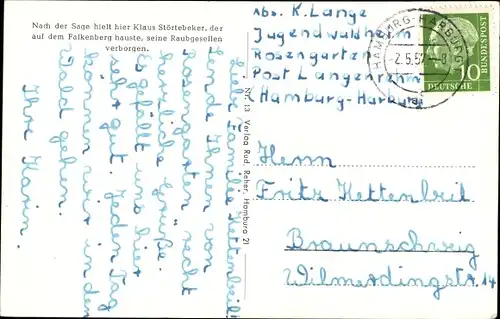 Nach der Sage hielt hier Klaus Störtebeker, der
auf dem Falkenberg hauste, seine Raubgesellen
verborgen.
Abs. K. Lange
Jugendwaldheim
Rosengarten
Post Langenrehm
Hamburg-Harburg
HAMBURG-HARBURG
-2.5.57-8
10
DEUTSCHE
BUNDESPOST
Liebe Familie Kettenbeil!
Sende Ihnen von
Rosengarten recht
herzliche Grüße.
Es gefällt uns hier
sehr gut. Jeden Tag
können wir in den
Wald gehen.
Ihre Karin.
Nr. 13 Verlag Rud. Reher, Hamburg 21
Herrn
Fritz Kettenbeil
Braunschweig
Wilmerdingstr. 14